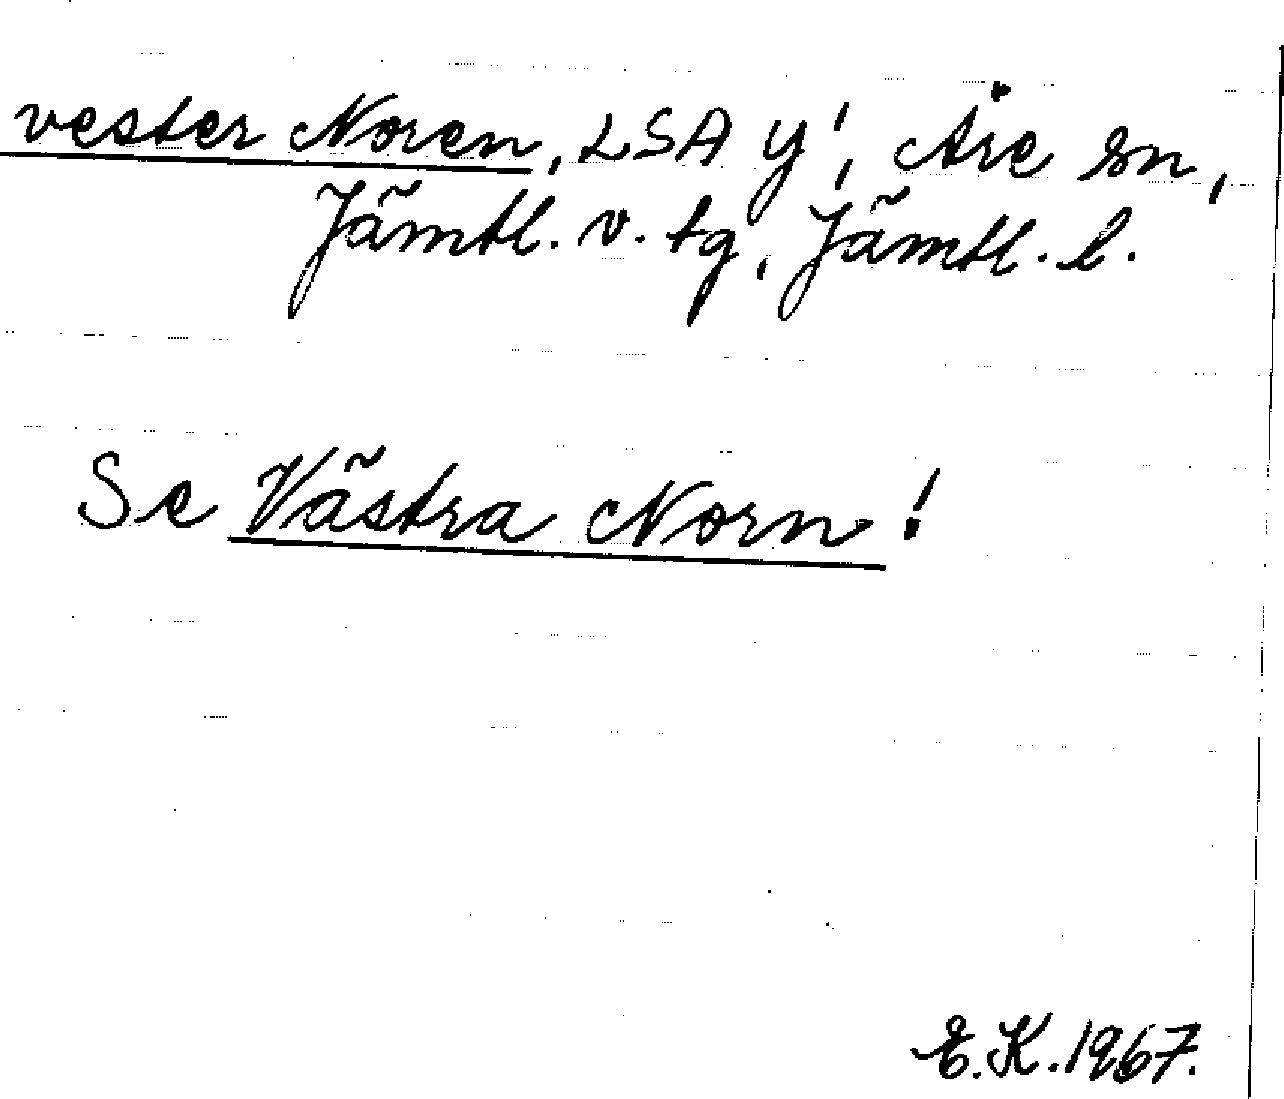 vester Noren, LSA Y!, Åre sn,
Jämtl. v. tg, Jämtl. l.
Se Västra Norn!
E.K. 1967.